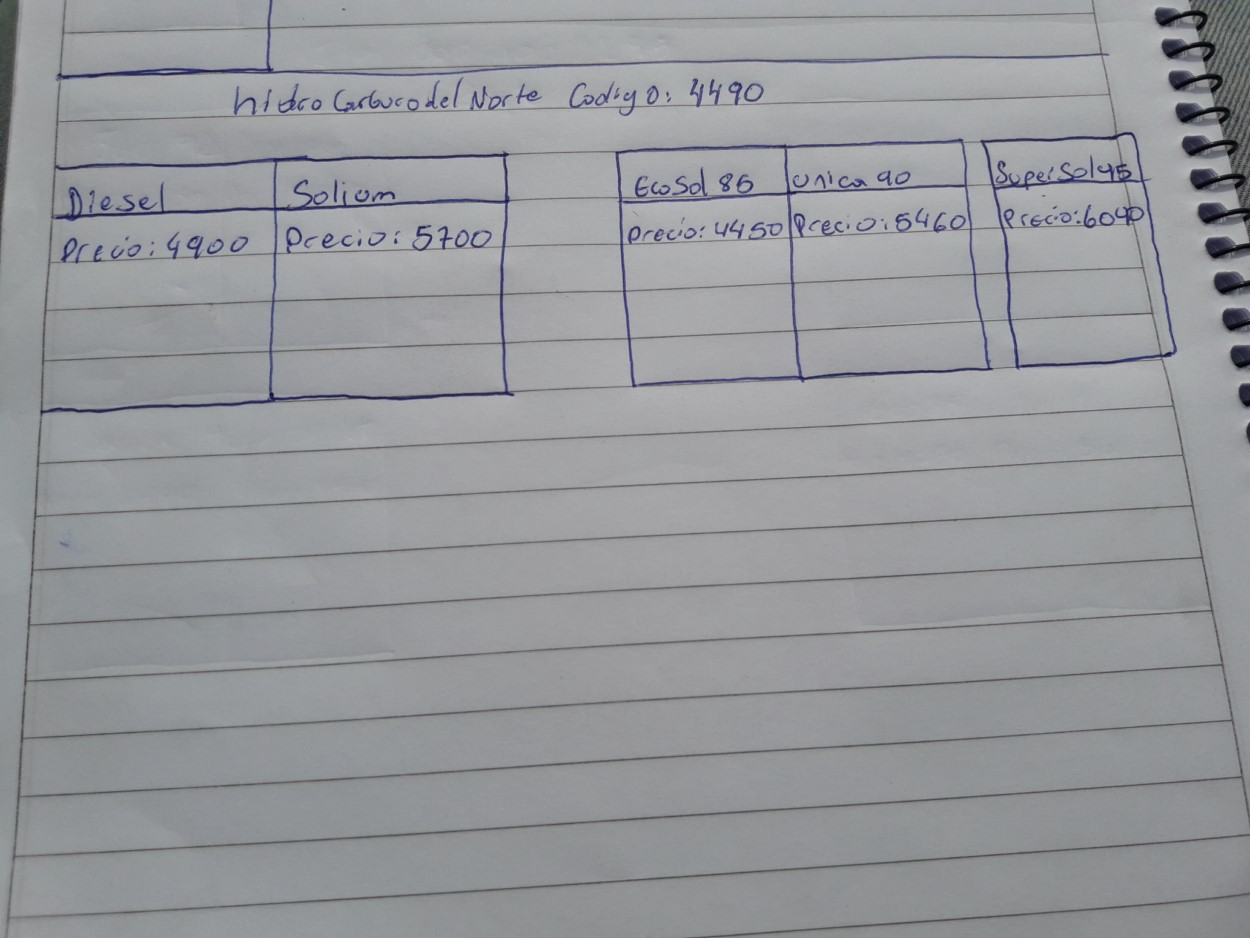 hidro Carburo del Norte Codigo: 4490
Diesel Solium EcoSol 85 Unica 90 SuperSol 95
Precio: 4900 Precio: 5700 Precio: 4450 Precio: 5460 Precio: 6090